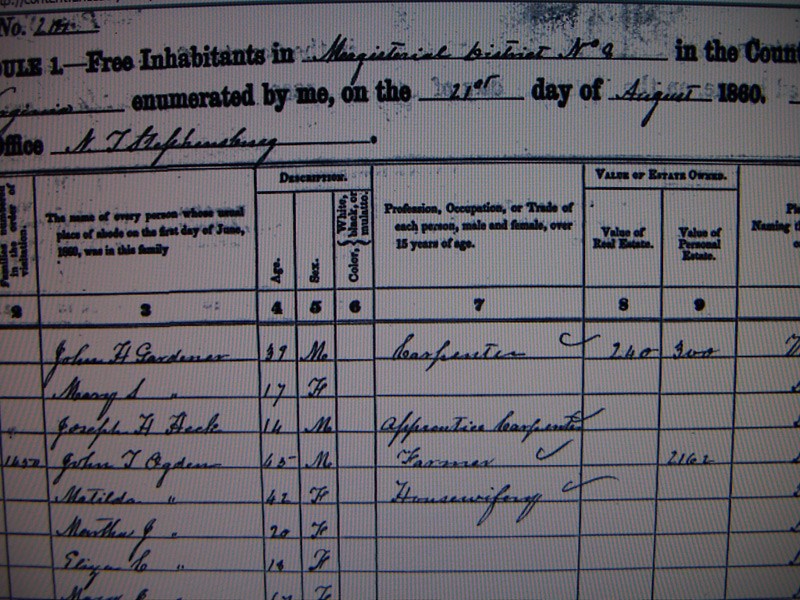 No.
DULE 1.—Free Inhabitants in Magisterial District No 8 in the Coun
irginia enumerated by me, on the 21st day of August 1860.
Office N. T Stephensburg
DESCRIPTION.
VALUE OF ESTATE OWNED.
Families numbered in the order of visitation.
The name of every person whose usual place of abode on the first day of June, 1860, was in this family
Age.
Sex.
Color, { White, black, or mulatto.
Profession, Occupation, or Trade of each person, male and female, over 15 years of age.
Value of Real Estate.
Value of Personal Estate.
Naming th
2 3 4 5 6 7 8 9
John H Gardener 39 M Carpenter 240 300
Mary S " 17 F
Joseph H Heck 14 M Apprentice Carpenter
1650 John T Ogden 45 M Farmer 2162
Matilda " 42 F Housewifery
Martha J " 20 F
Eliza C " 18 F
Mary F